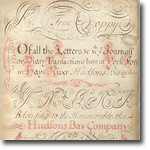 A True Coppy
Of all the Letters &c of the Journall
or Diary Transactions here at York Fort
in Hays River Hudsons Bay
Belonging to the Honourable the
Hudsons Bay Company